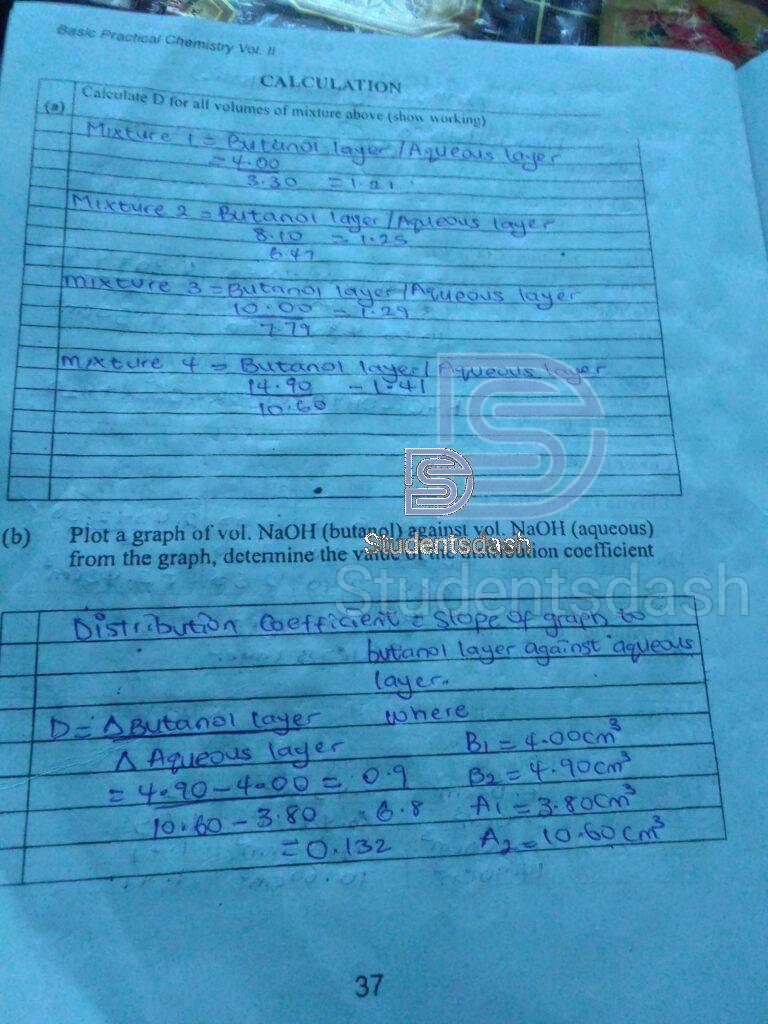 Basic Practical Chemistry Vol. II
CALCULATION
(a) Calculate D for all volumes of mixture above (show working)
Mixture 1 = Butanol layer/Aqueous layer
= 4.00
3.30 = 1.21
Mixture 2 = Butanol layer/Aqueous layer
8.10 = 1.25
6.47
Mixture 3 = Butanol layer/Aqueous layer
10.00 = 1.29
7.79
Mixture 4 = Butanol layer/Aqueous layer
14.90 - 1.41
10.60
(b) Plot a graph of vol. NaOH (butanol) against vol. NaOH (aqueous)
from the graph, determine the value of the distribution coefficient
Studentsdash
Studentsdash
Distribution Coefficient = Slope of graph to
butanol layer against aqueous
layer.
D = Δ Butanol layer where
Δ Aqueous layer B1 = 4.00cm³
= 4.90 - 4.00 = 0.9 B2 = 4.90cm³
10.60 - 3.80 6.8 A1 = 3.80cm³
= 0.132 A2 = 10.60cm³
37